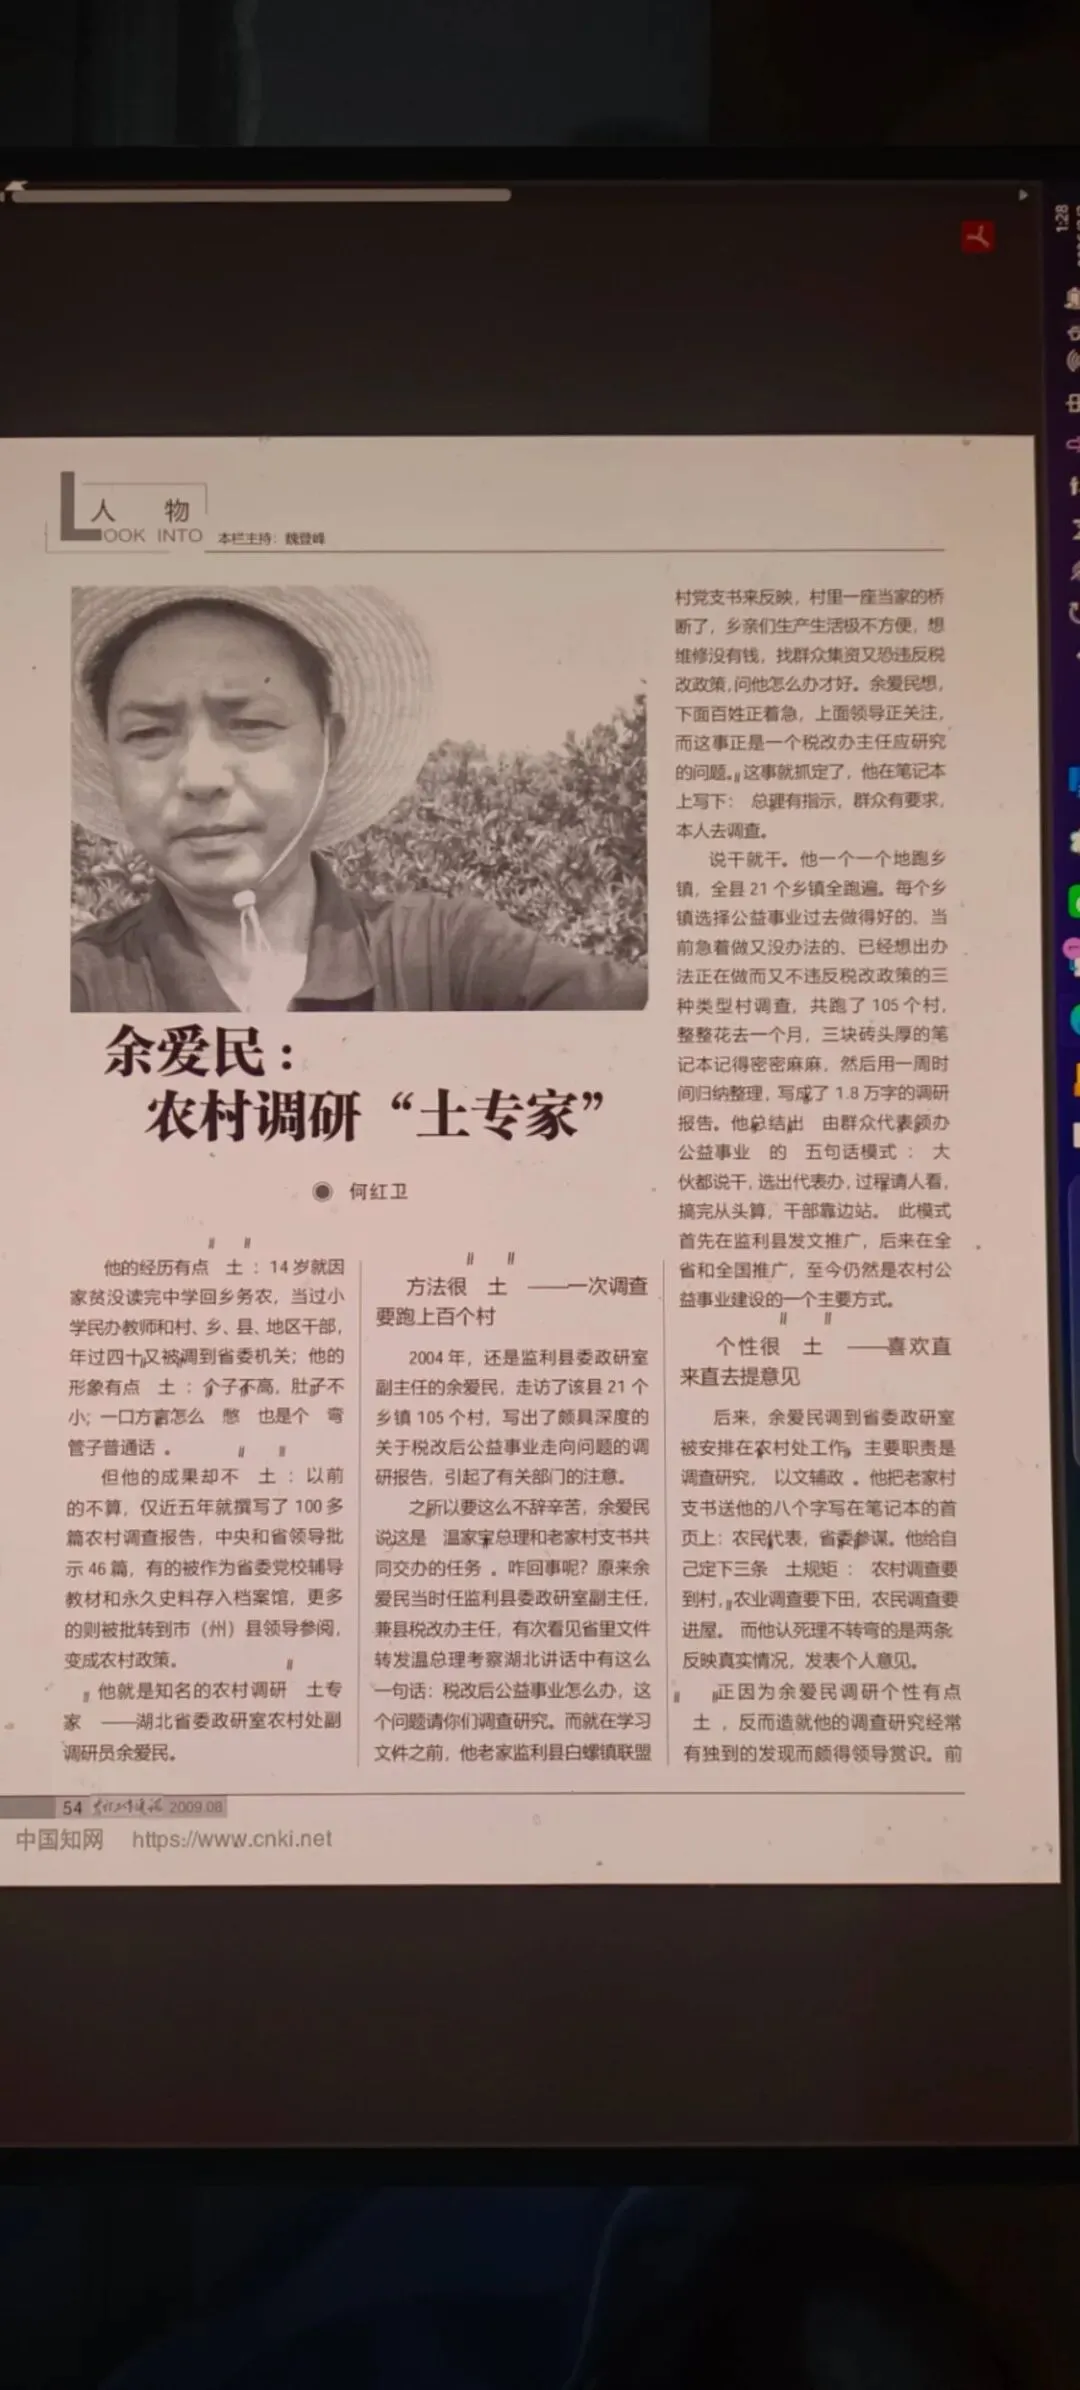 1:28
人 物
LOOK INTO 本栏主持：魏登峰
余爱民：
农村调研“土专家”
◉ 何红卫
他的经历有点 土 ：14岁就因
家贫没读完中学回乡务农，当过小
学民办教师和村、乡、县、地区干部，
年过四十又被调到省委机关；他的
形象有点 土 ：个子不高，肚子不
小；一口方言怎么 憋 也是个 弯
管子普通话 。
但他的成果却不 土 ：以前
的不算，仅近五年就撰写了100多
篇农村调查报告，中央和省领导批
示46篇，有的被作为省委党校辅导
教材和永久史料存入档案馆，更多
的则被批转到市（州）县领导参阅，
变成农村政策。
他就是知名的农村调研 土专
家 ——湖北省委政研室农村处副
调研员余爱民。
方法很 土 ——一次调查
要跑上百个村
2004年，还是监利县委政研室
副主任的余爱民，走访了该县21个
乡镇105个村，写出了颇具深度的
关于税改后公益事业走向问题的调
研报告，引起了有关部门的注意。
之所以要这么不辞辛苦，余爱民
说这是 温家宝总理和老家村支书共
同交办的任务 。咋回事呢？原来余
爱民当时任监利县委政研室副主任，
兼县税改办主任，有次看见省里文件
转发温总理考察湖北讲话中有这么
一句话：税改后公益事业怎么办，这
个问题请你们调查研究。而就在学习
文件之前，他老家监利县白螺镇联盟
村党支书来反映，村里一座当家的桥
断了，乡亲们生产生活极不方便，想
维修没有钱，找群众集资又恐违反税
改政策，问他怎么办才好。余爱民想，
下面百姓正着急，上面领导正关注，
而这事正是一个税改办主任应研究
的问题。这事就抓定了，他在笔记本
上写下： 总理有指示，群众有要求，
本人去调查。
说干就干。他一个一个地跑乡
镇，全县21个乡镇全跑遍。每个乡
镇选择公益事业过去做得好的、当
前急着做又没办法的、已经想出办
法正在做而又不违反税改政策的三
种类型村调查，共跑了105个村，
整整花去一个月，三块砖头厚的笔
记本记得密密麻麻，然后用一周时
间归纳整理，写成了1.8万字的调研
报告。他总结出 由群众代表领办
公益事业 的 五句话模式 ： 大
伙都说干，选出代表办，过程请人看，
搞完从头算，干部靠边站。 此模式
首先在监利县发文推广，后来在全
省和全国推广，至今仍然是农村公
益事业建设的一个主要方式。
个性很 土 ——喜欢直
来直去提意见
后来，余爱民调到省委政研室
被安排在农村处工作，主要职责是
调查研究， 以文辅政 。他把老家村
支书送他的八个字写在笔记本的首
页上：农民代表，省委参谋。他给自
己定下三条 土规矩 ： 农村调查要
到村，农业调查要下田，农民调查要
进屋。 而他认死理不转弯的是两条
反映真实情况，发表个人意见。
正因为余爱民调研个性有点
土 ，反而造就他的调查研究经常
有独到的发现而颇得领导赏识。前
54 农村工作通讯 2009.08
中国知网 https://www.cnki.net